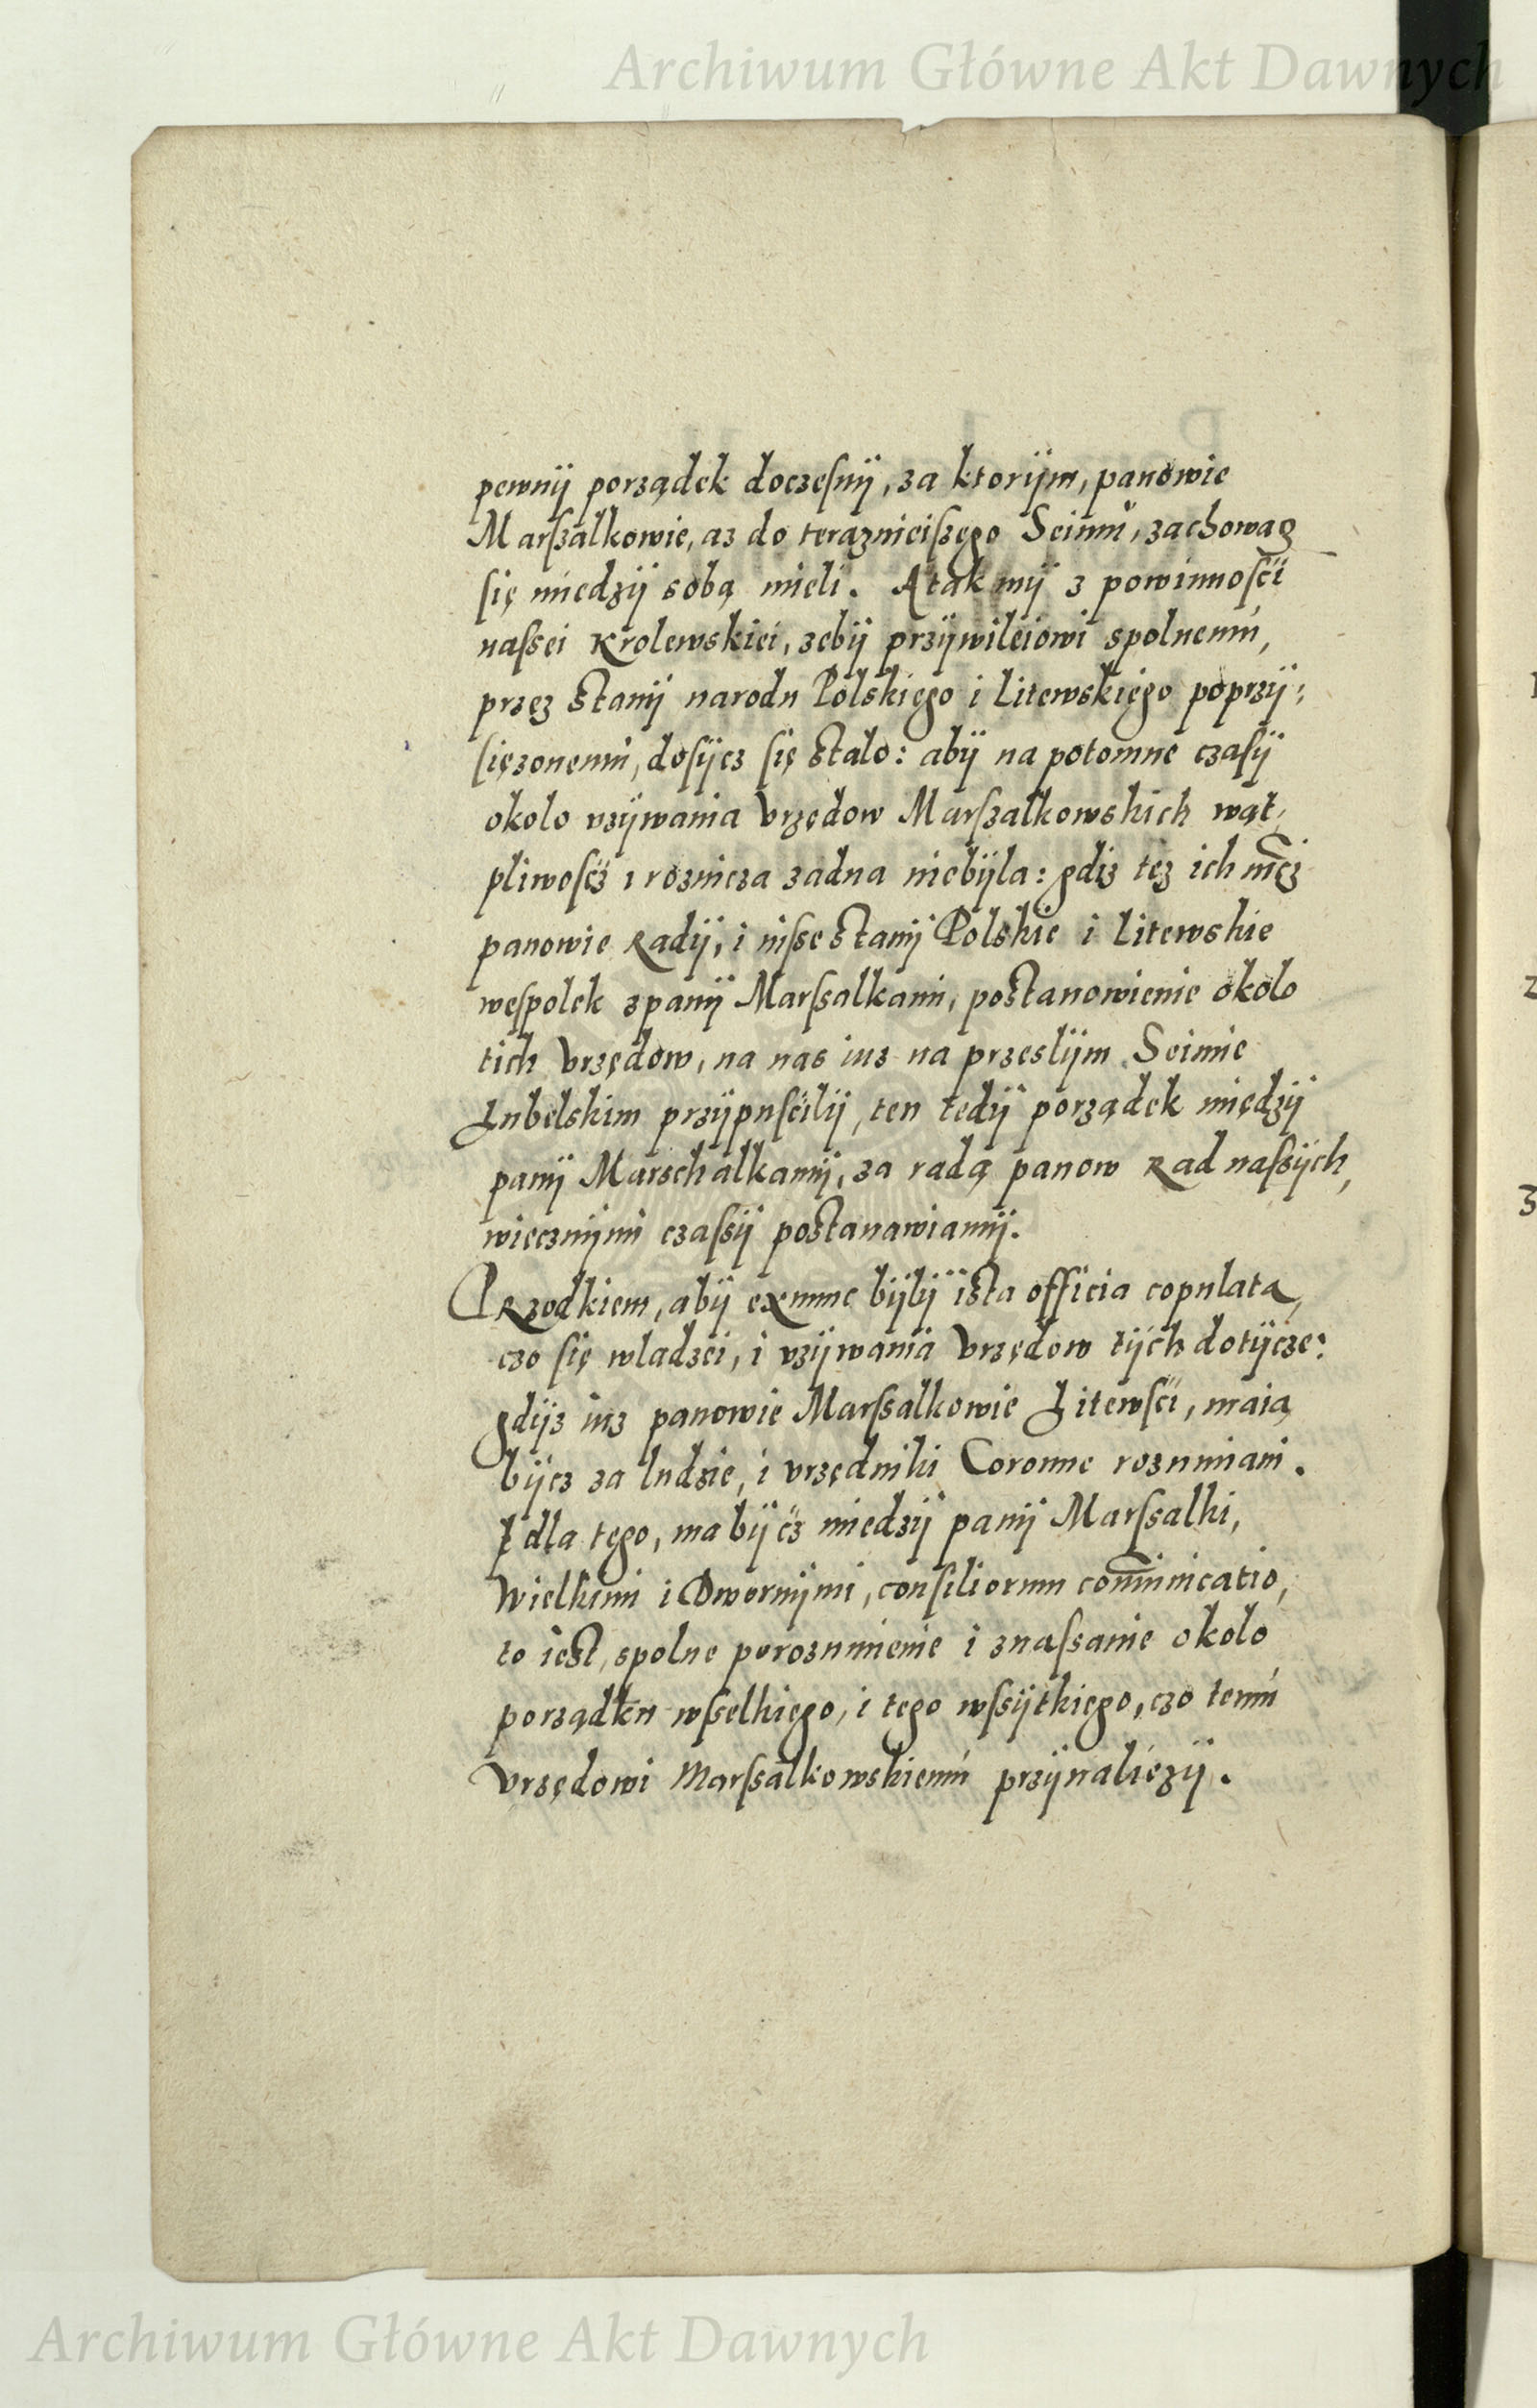 Archiwum Główne Akt Dawnych
pewnÿ porządek doczesnÿ, za ktorÿm, panowie
Marſzalkowie, az do teraznieiſzego Seimu, zachowacz
ſię miedzÿ sobą mieli. A tak mÿ z powinnoſći
naſsei Krolewskiei, zebÿ przÿwileiowi spolnemu,
przez stanÿ narodu Polskiego i Litewskiego poprzÿ:
ſięzonemu, doſÿcz ſię stalo: abÿ na potomne czaſÿ
okolo vzÿwania Vrzędow Marſzalkowskich wąt,
pliwoſćz i roznicza zadna niebÿla: gdiz tez ich mcz
panowie Radÿ, i insze stanÿ Polskie i Litewskie
weſpolek z panÿ Marſsalkami, postanowienie okolo
tich Vrzędow, na nas iuz na przeslÿm Seimie
Lubelskim przÿpuſćilÿ, ten tedÿ porządek międzÿ
panÿ Marschalkamÿ, za radą panow Rad naſsÿch,
wiecznÿmi czaſsÿ postanawiamÿ.
Przodkiem, abÿ exnunc bÿlÿ ista officia copulata,
czo ſię wladzei, i vzÿwania Vrzędow tÿch dotÿcze:
gdÿz iuz panowie Marſsalkowie Litewſći, maią
bÿcz za ludzie, i vrzędniki Coronne rozumiani.
I dla tego, ma bÿćz miedzÿ panÿ Marſsalki,
Wielkimi i Dwornÿmi, conſiliorum com̄unicatio,
to iest, spolne porozumienie i znaſsanie okolo
porządku wſselkiego, i tego wſsÿtkiego, czo temu
Vrzędowi Marſsalkowskiemu przÿnaliezÿ.
1
2
3
Archiwum Główne Akt Dawnych